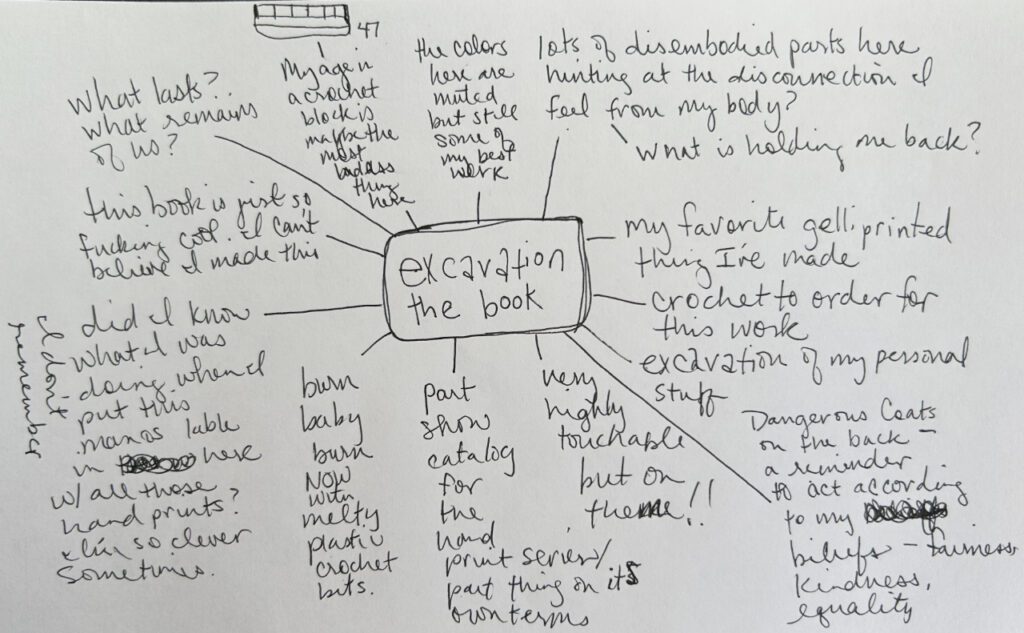 excavation
the book
47
My age in
a crochet
block is
maybe the
most
badass
thing
here
the colors
here are
muted
but still
some of
my best
work
lots of disembodied parts here
hinting at the disconnection I
feel from my body?
what is holding me back?
my favorite gelli printed
thing I've made
crochet to order for
this work
excavation of my personal
stuff
Dangerous Coats
on the back –
a reminder
to act according
to my
beliefs – fairness,
kindness,
equality
very
highly
touchable
but on
theme!!
part
show
catalog
for
the
hand
print series/
part thing on its
own terms
burn
baby
burn
NOW
with
melty
plastic
crochet
bits.
did I know
what I was
doing when I
put this
manos lable
in here
w/ all those
hand prints?
I'm so clever
sometimes.
I don't
remember
this book is just so
fucking cool. I can't
believe I made this
What lasts?
what remains
of us?